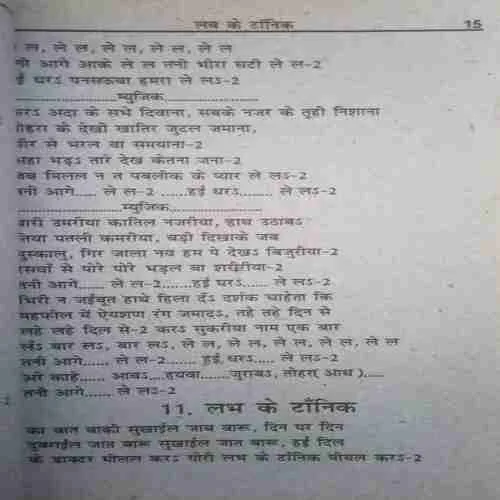 लव के टॉनिक 15
ल, ले ल, ले ल, ले ल, ले ल
नी आगे आके ले ल तनी भीरा सटी ले ल-2
ई धरऽ पनसऊवा हमरा ले लऽ-2
म्युजिक
करऽ अदा के सभे दिवाना, सबके नजर के तूही निशाना
तोहरा के देखी खातिर जुटल जमाना,
और से भरल बा समयाना-2
कहा भइऽ तारे देख केतना जना-2
अब मिलल न त पबलीक के प्यार ले लऽ-2
तनी आगे.... ले ल-2 ......हई धरऽ........ ले लऽ-2
म्युजिक
बारी उमरीया कातिल नजरीया, हाथ उठावऽ
नया पतली कमरीया, बड़ी दिखाके जब
मुस्कालु, गिर जाला नव हम पे देखऽ बिजुरीया-2
रसवाँ से पोरे पोरे भइल बा शरीरीया-2
तनी आगे..... ले ल-2......हई धरऽ...... ले लऽ-2
थिरी न जईबुत हाथे हिला दऽ दर्शक चाहेता कि
महफील में ऐयशण रंग जमादऽ, तहे तहे दिन से
तहे तहे दिल से-2 करऽ सुकरीया नाम एक बार
लऽ बार लऽ, बार लऽ, ले ल, ले ल, ले ल, ले ल, ले ल
तनी आगे..... ले ल-2....... हई धरऽ..... ले लऽ-2
अरे काहे..... आवऽ....हथवा.......जुरावऽ, तोहरा( आध ).....
तनी आगे..... ले लऽ-2
11. लभ के टॉनिक
का बात बाकी सुखाईल जाय बारू, दिन पर दिन
दुबराईल जात बारू सुखाईल जात बारू, हई दिल
के डाक्टर बोलल करऽ गोरी लभ के टॉनिक पीयल करऽ-2